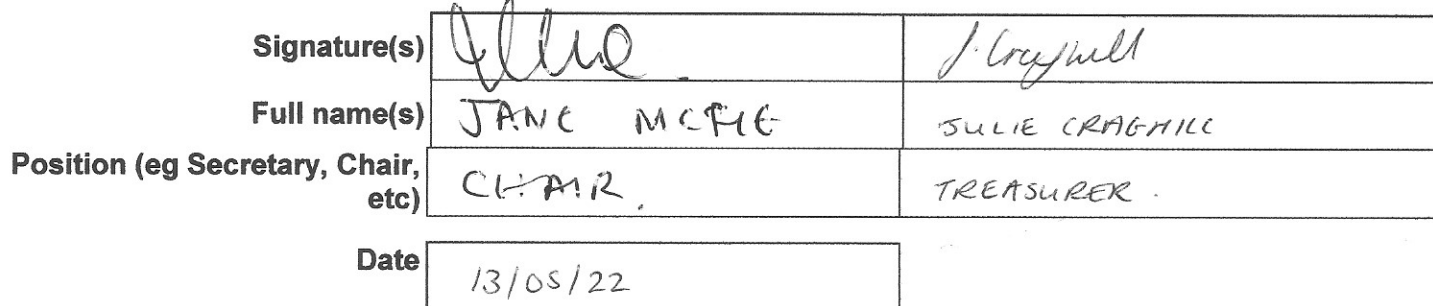 Signature(s) J. Craghill
Full name(s) JANE MCFIE JULIE CRAGHILL
Position (eg Secretary, Chair,
etc) CHAIR. TREASURER.
Date 13/05/22